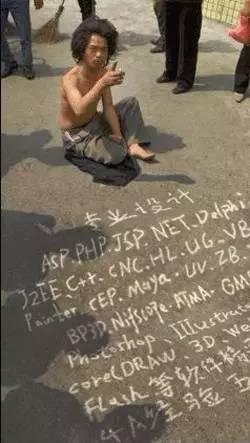 专业设计
ASP.PHP.JSP.NET.Delphi
J2EE.C++.CNC.HL.UG.VB
Painter.CEP.Maya.UV.ZB.
BP3D.
Photoshop、Illustrat
corelDRAW、3D
Flash 等软件
经验